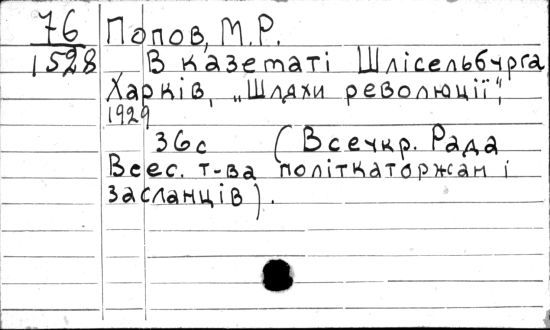 76 Попов, М.Р.
1528 В казематі Шлісельбурга
Харків, „Шляхи революції”,
1929
36с (Всеукр. Рада
Всес. т-ва політкаторжан і
засланців).